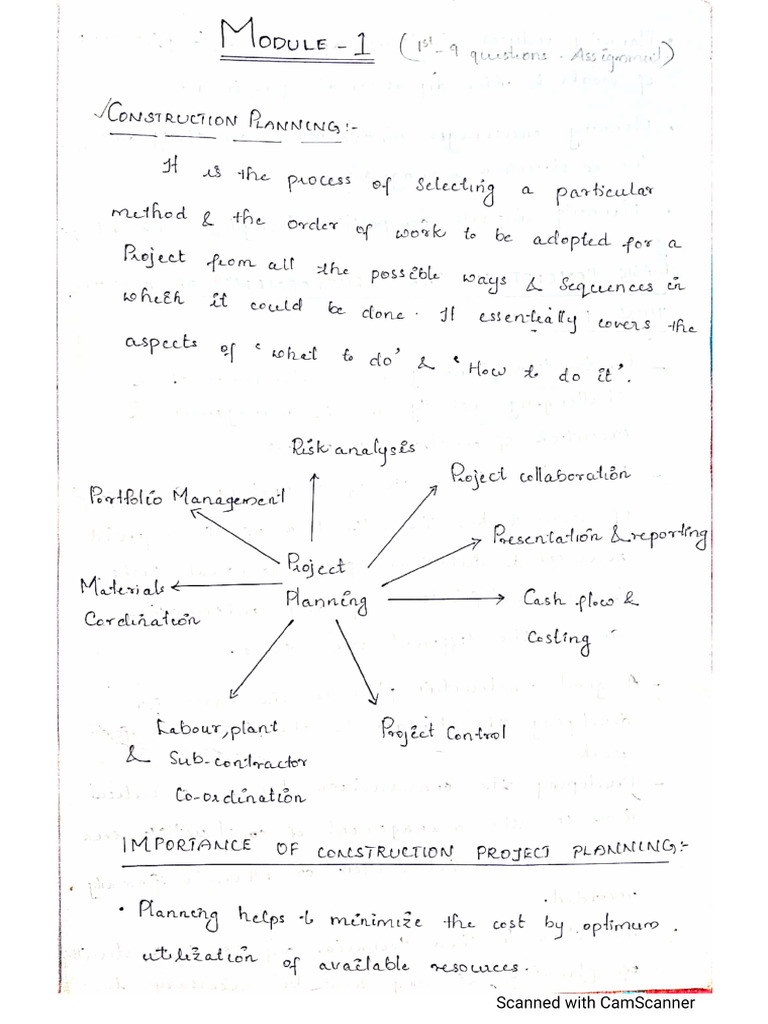 MODULE - 1 (1st - 9 questions - Assignment)
✓CONSTRUCTION PLANNING :-
It is the process of selecting a particular
method & the order of work to be adopted for a
Project from all the possible ways & sequences in
which it could be done. It essentially covers the
aspects of 'what to do' & 'How to do it'.
Risk analysis
Project collaboration
Portfolio Management
Presentation & reporting
Project
Planning
Materials
Cordination
Cash flow &
Costing
Labour, plant
& Sub-contractor
Co-ordination
Project Control
IMPORTANCE OF CONSTRUCTION PROJECT PLANNING:-
• Planning helps to minimize the cost by optimum
utilization of available resources.
Scanned with CamScanner